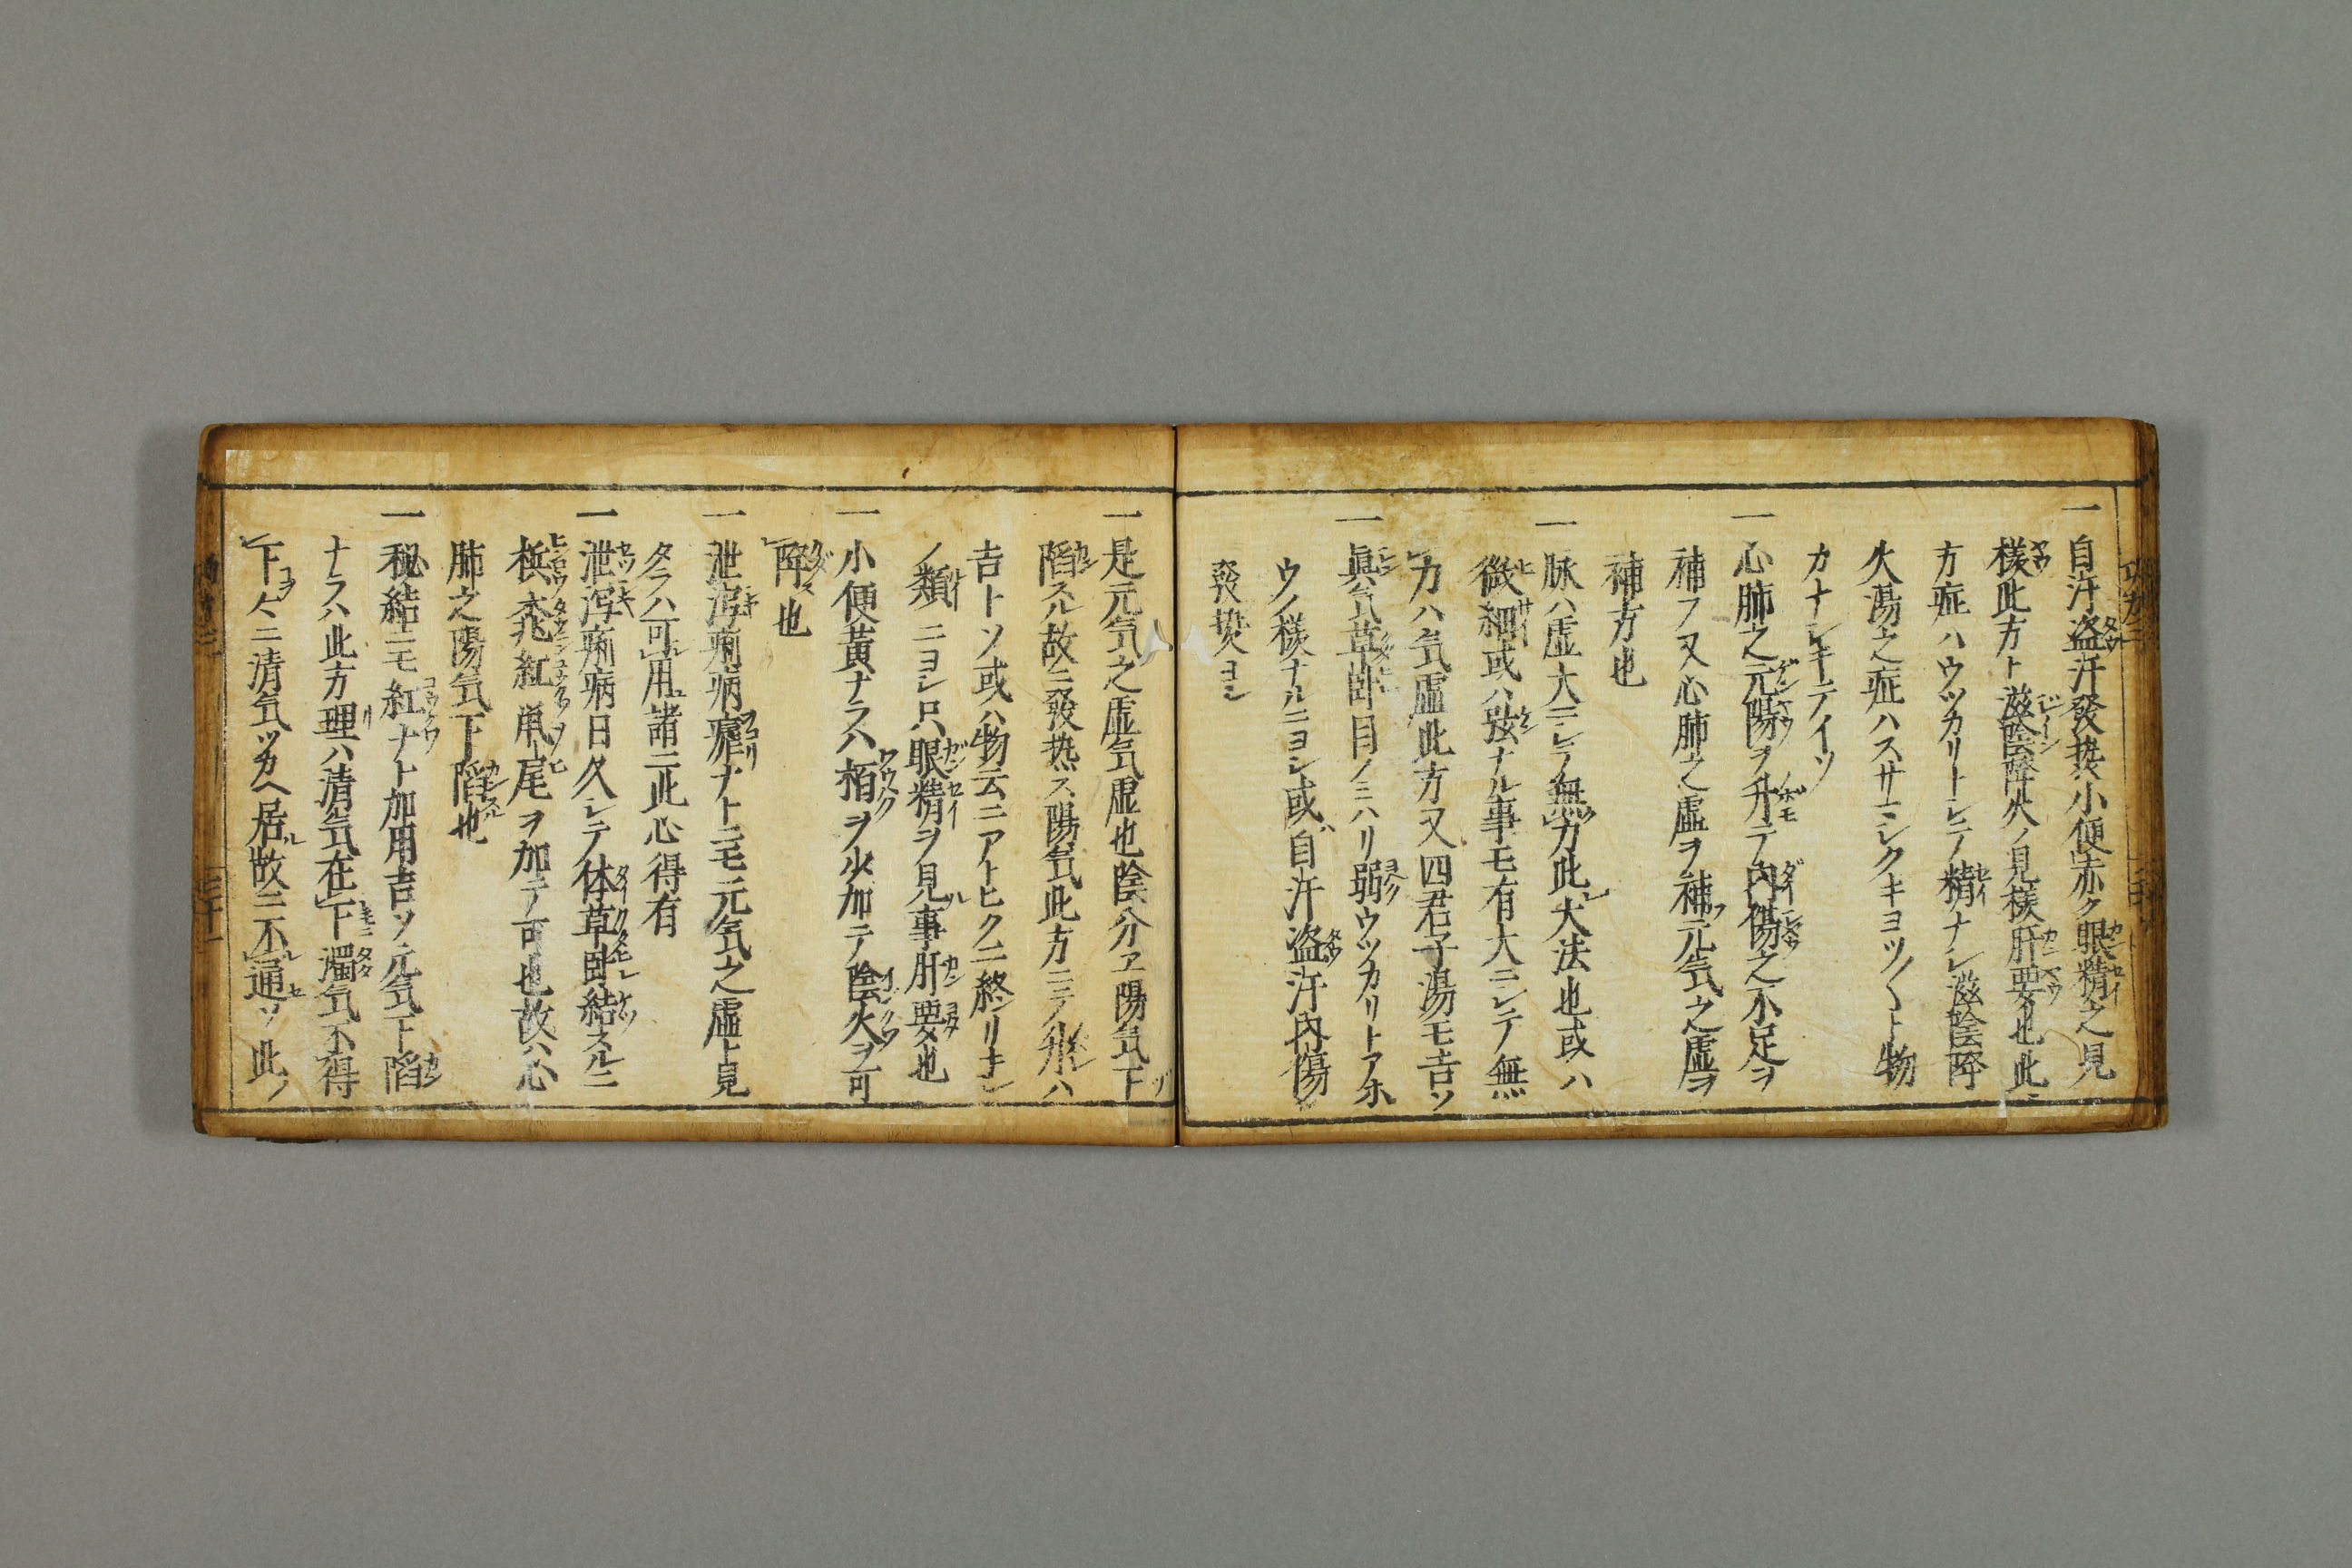 一自汗盗汗發熱小便赤ク眼精之見
様此方ト滋陰降火ノ見様肝要也此
方症ハウツカリトシテ精ナシ滋陰降
火湯之症ハスサマシクキヨツ〱ト物
カナシキテイソ
一心肺之元陽ヲ升テ内傷之不足ヲ
補フ又心肺之虚ヲ補フ元気之虚ヲ
補方也
一脉ハ虚大ニシテ無力此大法也或ハ
微細或ハ弦ナル事モ有大ニシテ無
力ハ気虚此方又四君子湯モ吉ソ
一眞気草臥目ノミハリ弱ウツカリトアホ
ウノ様ナルニヨシ或自汗盗汗内傷
發熱ヨシ
一是元気之虚気虚也陰分エ陽気下
陷スル故ニ發熱ス陽気此方ニテ升ハ
吉トソ或ハ物云ニアトヒクニ終リナシ
ノ類ニヨシ只眼精ヲ見事肝要也
一小便黄ナラハ栢ヲ少加テ陰火ヲ可
降也
一泄瀉痢病瘧ナトニモ元気之虚ト見
タラハ可用諸ニ此心得有
一泄瀉痢病日久シテ体草臥結スルニ
梹桃紅鼠尾ヲ加テ可也故ハ心
肺之陽気下陷也
一秘結ニモ紅ナト加用吉ソ元気下陷
ナラハ此方理ハ清気在下濁気不得
下仝ニ清気ツカヘ居故ニ不通ソ此ノ